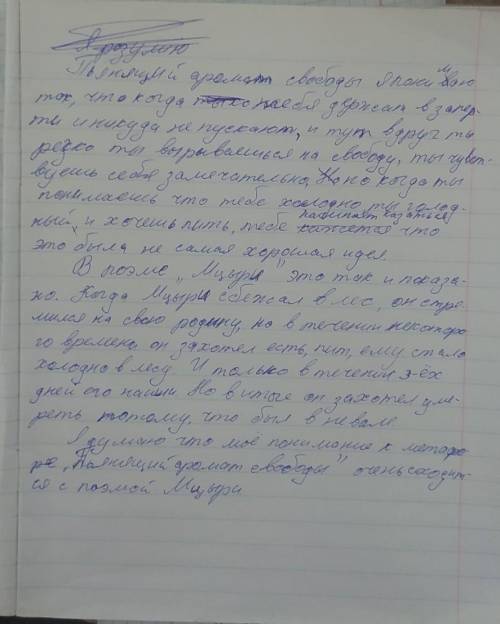 Я розумію
Пьянящий аромат свободы я понимаю
так, что когда тебя держат в запер-
ти и никуда не пускают, и тут вдруг ты
резко ты вырываешься на свободу, ты чувст-
вуешь себя замечательно. Но когда ты
понимаешь что тебе холодно, ты голод-
ный, и хочешь пить, тебе кажется начинает казаться что
это была не самая хорошая идея.
В поэме "Мцыри" это так и показа-
но. Когда Мцыри сбежал в лес, он стре-
мился на свою родину, но в течении некоторо-
го времени он захотел есть, пит, ему стало
холодно в лесу. И только в течении 3-ёх
дней его нашли. Но в итоге он захотел уме-
реть потому, что был в неволе.
Я думаю что моё понимание к метафо-
ре "Пьянящий аромат свободы" очень сходит-
ся с поэмой Мцыри.